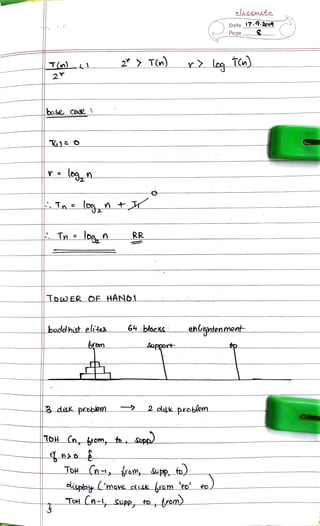 classmate
Date 17.9.2019
Page 8
T(n) < 1 2^r > T(n) r > log T(n)
2^r
base case :
T(1) = 0
r = log₂ n
∴ Tn = log₂ n + T1 0
∴ Tn = log₂ n RR
TOWER OF HANOI
boddhist elites 64 blocks enlightenment
from support to
3 disk problem → 2 disk problem
TOH (n, from, to, supp)
if n>0 {
TOH (n-1, from, supp, to)
display ('move disk from 'to' to)
TOH (n-1, supp, to, from)
}